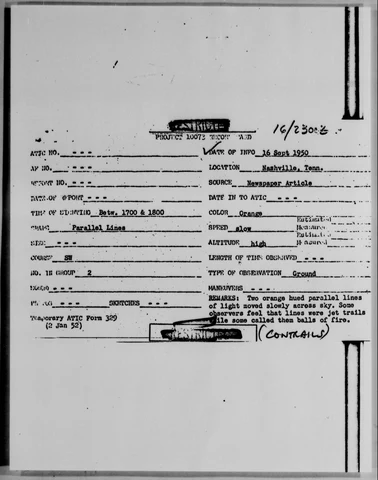 RESTRICTED
PROJECT 10073 RECORD CARD
16/2300Z
ATIC NO. - - -
DATE OF INFO 16 Sept 1950
AF NO. - - -
LOCATION Nashville, Tenn.
REPORT NO. - - -
SOURCE Newspaper Article
DATE OF REPORT - - -
DATE IN TO ATIC - - -
TIME OF SIGHTING Betw. 1700 & 1800
COLOR Orange
SHAPE Parallel Lines
SPEED slow
Estimated
Measured
SIZE - - -
ALTITUDE high
Estimated
Measured
COURSE SW
LENGTH OF TIME OBSERVED - - -
NO. IN GROUP 2
TYPE OF OBSERVATION Ground
SOUND - - -
MANEUVERS - - -
PHOTOS - - - SKETCHES - - -
REMARKS: Two orange hued parallel lines
of light moved slowly across sky. Some
observers feel that lines were jet trails
while some called them balls of fire.
Temporary ATIC Form 329
(2 Jan 52)
RESTRICTED
(CONTRAILS)